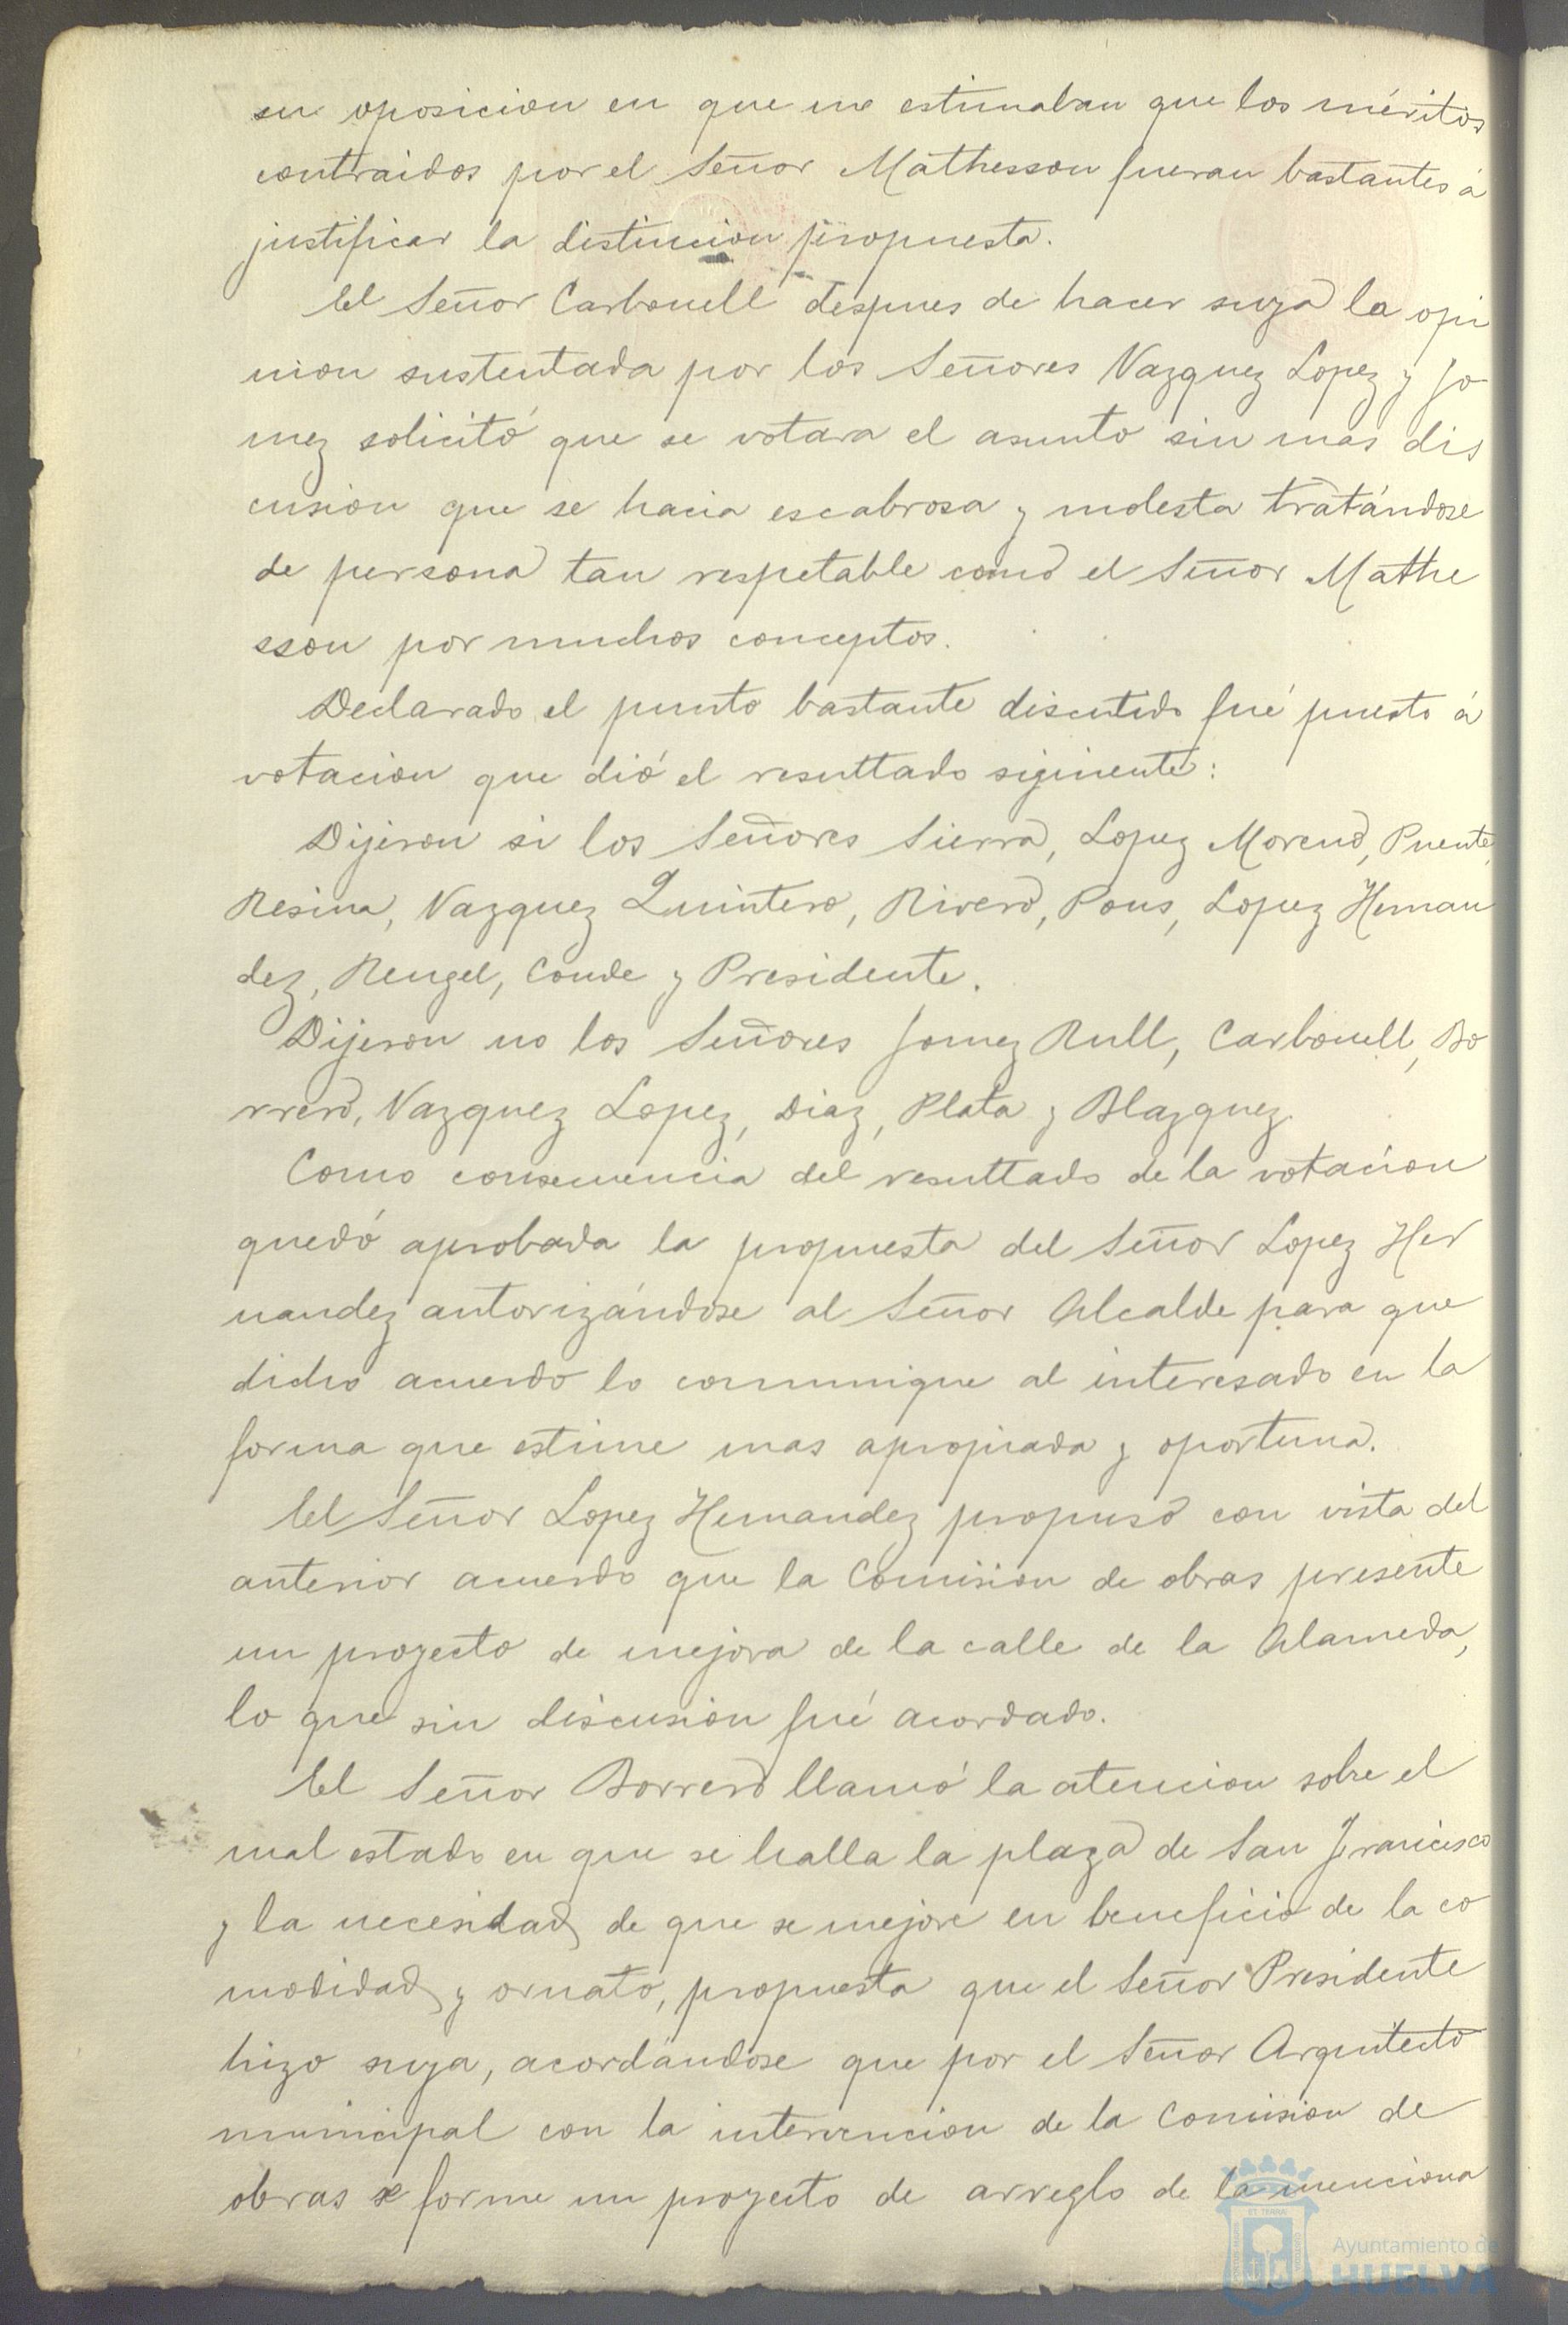 su oposicion en que no estimaban que los méritos
contraidos por el Señor Mathesson fueran bastantes á
justificar la distincion propuesta.
El Señor Carbonell despues de hacer suya la opi
nion sustentada por los Señores Vazquez Lopez y Go
mez solicitó que se votara el asunto sin mas dis
cusion que se hacia escabrosa y molesta tratándose
de persona tan respetable como el Señor Mathe
sson por muchos conceptos.
Declarado el punto bastante discutido fué puesto á
votacion que dió el resultado siguiente:
Dijeron si los Señores Sierra, Lopez Moreno, Puente,
Resina, Vazquez Quintero, Rivero, Pons, Lopez Hernan
dez, Rengel, Conde y Presidente.
Dijeron no los Señores Gomez Rull, Carbonell, Bo
rrero, Vazquez Lopez, Diaz, Plata y Blazquez.
Como consecuencia del resultado de la votacion
quedó aprobada la propuesta del Señor Lopez Her
nandez autorizándose al Señor Alcalde para que
dicho acuerdo lo comunique al interesado en la
forma que estime mas apropiada y oportuna.
El Señor Lopez Hernandez propuso con vista del
anterior acuerdo que la Comision de obras presente
un proyecto de mejora de la calle de la Alameda,
lo que sin discusion fué acordado.
El Señor Borrero llamó la atencion sobre el
mal estado en que se halla la plaza de San Francisco
y la necesidad de que se mejore en beneficio de la co
modidad y ornato, propuesta que el Señor Presidente
hizo suya, acordándose que por el Señor Arquitecto
municipal con la intervencion de la Comision de
obras se forme un proyecto de arreglo de la menciona
Ayuntamiento de
HUELVA